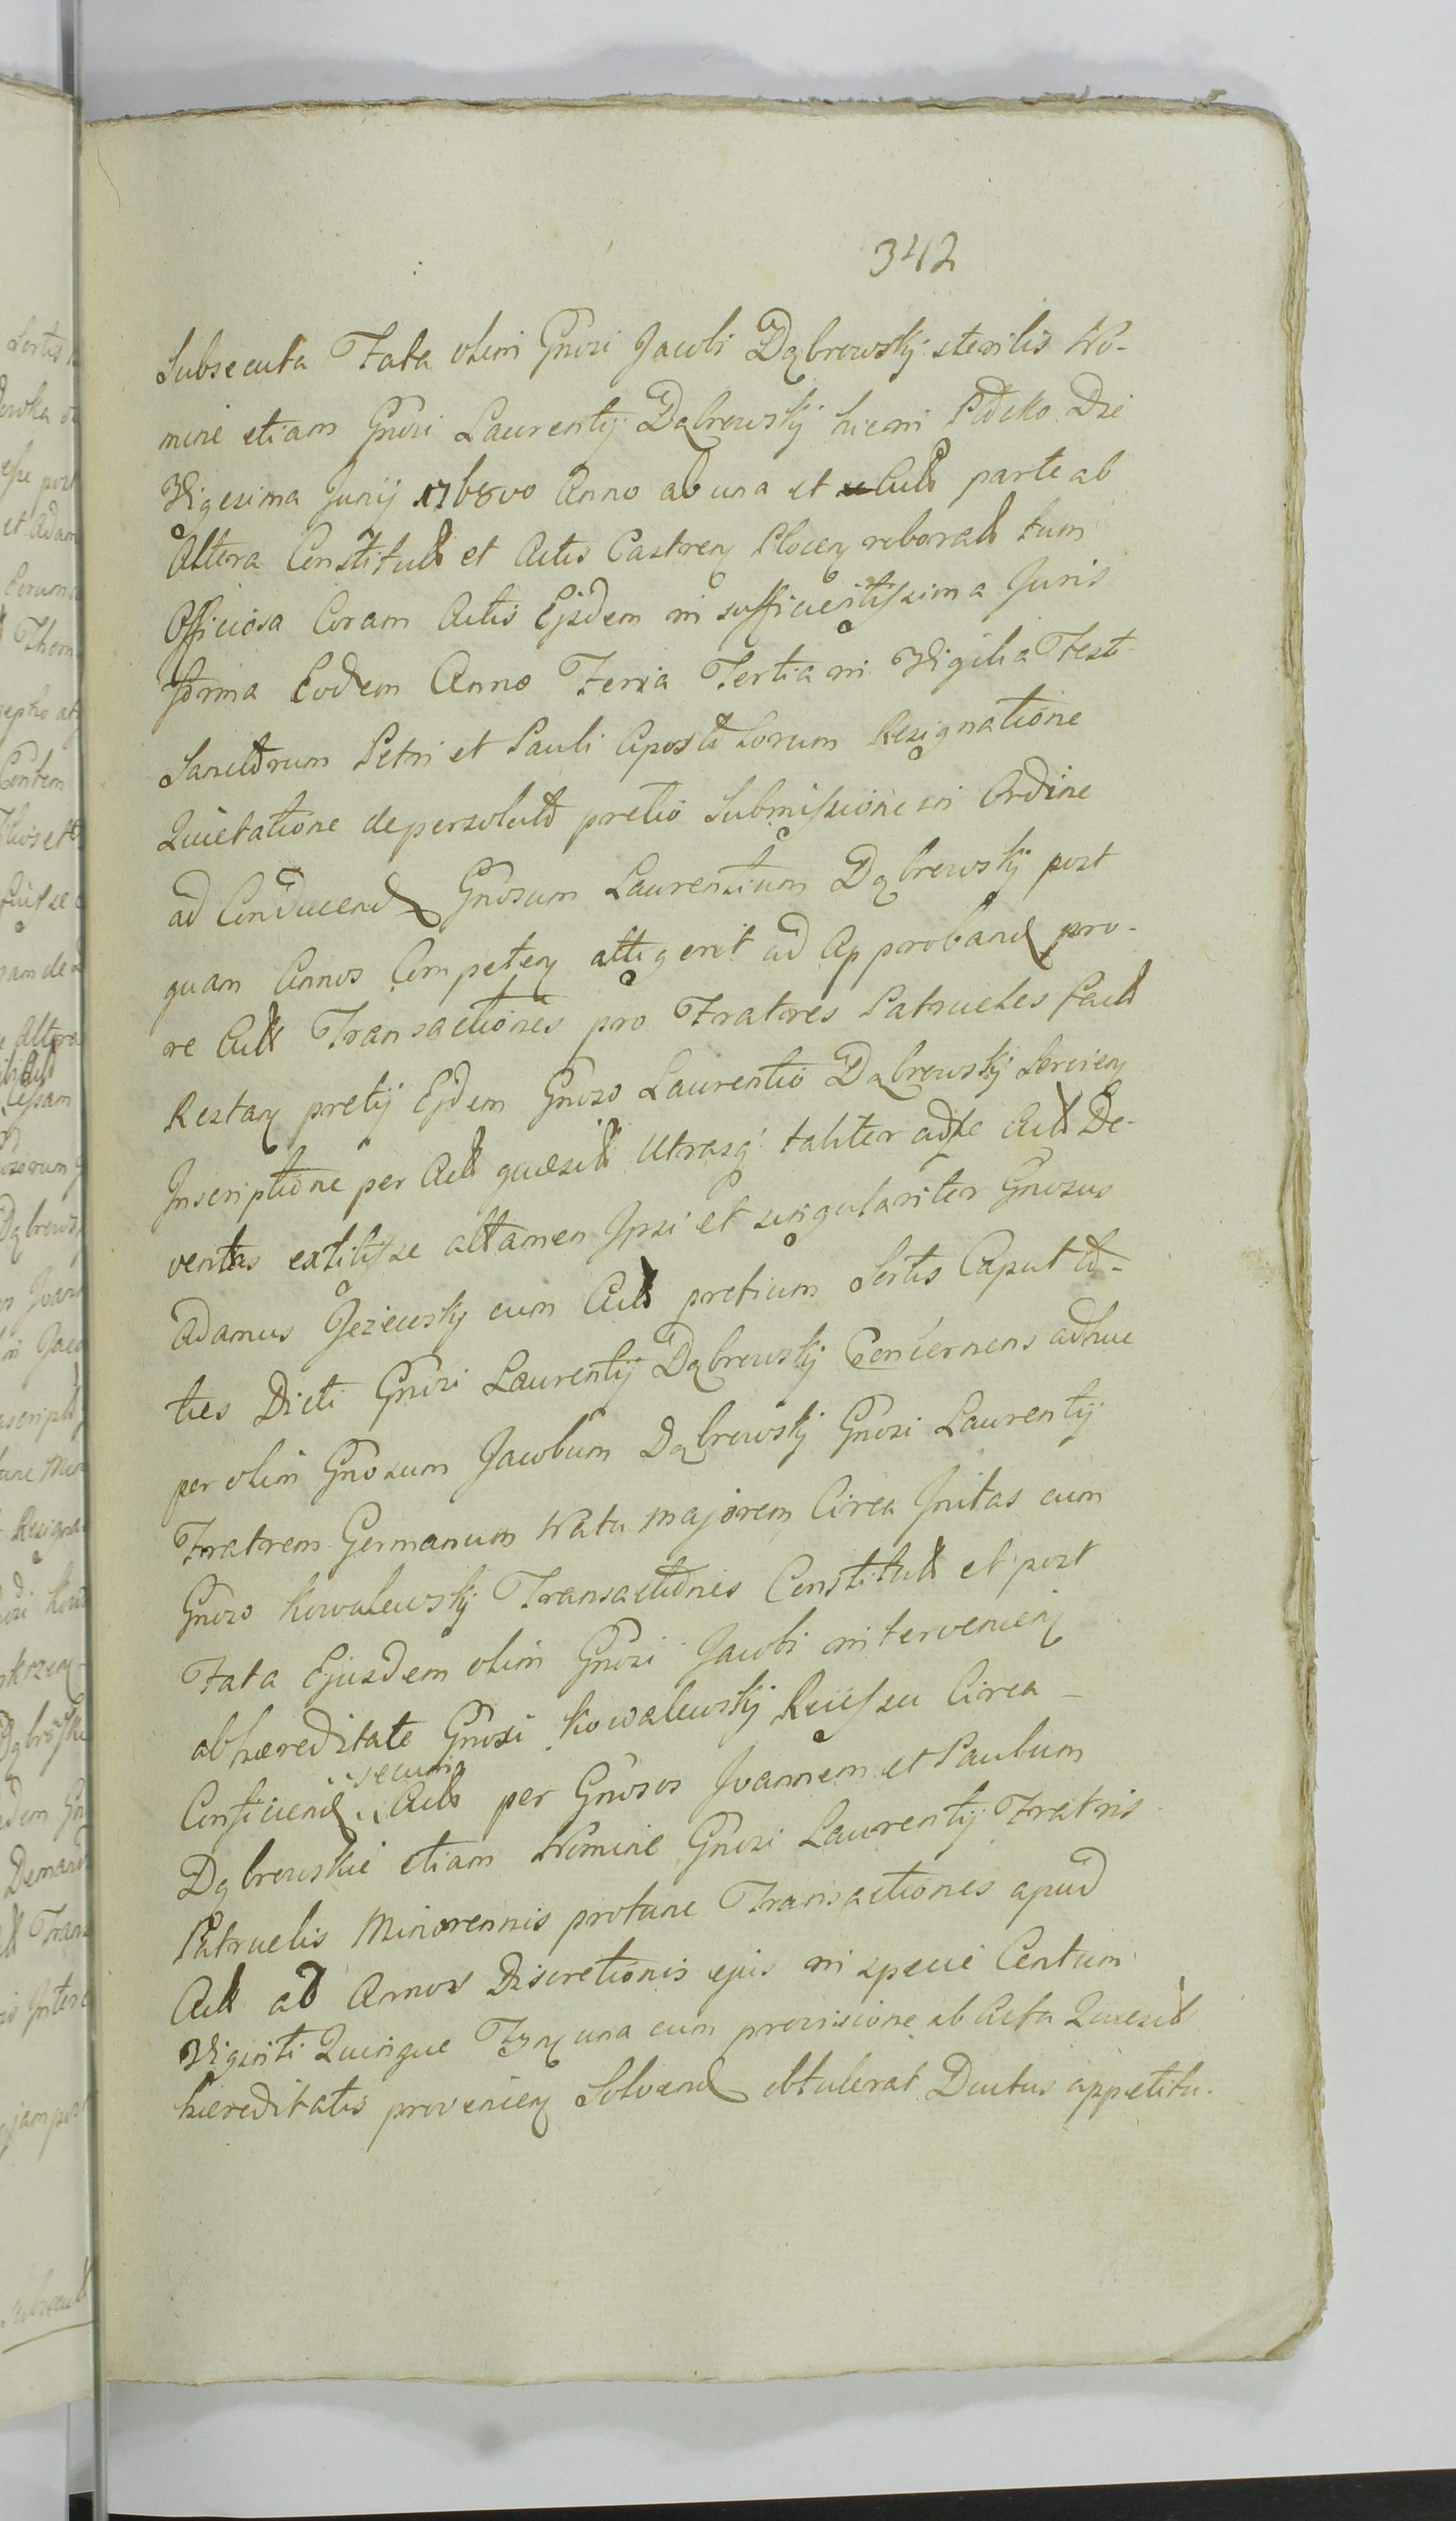 342
Subsecuta Fata olim Gnosi Jacobi Dąbrowskij sterilis No-
mine etiam Gnosi Laurentij Dąbrowskij hicmi Die
Vigesima Junij Anno ab una et Actt parte ab
Altera Constitutt et Actis Castren Plocen roboratt tum
Officiosa Coram Actis Ejsdem in sufficientissima Juris
forma Eodem Anno Feria Tertia in Vigilia Festi
Sanctorum Petri et Pauli Apostolorum Resignatione
Quietatione de persoluto pretio Submissione in Ordine
ad Conducend Gnosum Laurentium Dąbrowskij post
quam Annos Competen attigerit ad Approband pro-
re Actt Transactiones pro Fratres Patrueles fact
Restan pretij Ejdem Gnoso Laurentio Dąbrowskij Servien
Inscriptione per Actt quæsitt Utrasq taliter adsse Actt De-
ventas extitisse attamen Ipsi et singulariter Gnosus
Adamus Jezewskij cum Actt pretium Sortis Caput to-
ties Dicti Gnosi Laurentij Dąbrowskij Concernens adhuc
per olim Gnosum Jacobum Dąbrowskij Gnosi Laurentij
Fratrem Germanum Natu majorem Circa Initas cum
Gnoso Kowalewskij Transactiones Constitutt et post
Fata Ejusdem olim Gnosi Jacobi intervenien
ab hæreditate Gnosi Kowalewskij Recessu Circa
Conficiend Actt per Gnosos Joannem et Paulum
Dąbrowskie etiam Nomine Gnosi Laurentij Fratris
Patruelis Minorennis protunc Transactiones apud
Actt ad Annos Discretionis ejus in specie Centum
Viginti Quinque Fzny una cum provisione ab Acta Quæsit
hæreditatis provenien Solvend obtulerat Ductus appetitu-